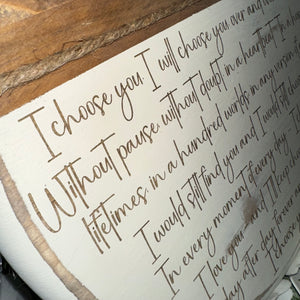 I choose you. I will choose you over and over
Without pause, without doubt, in a heartbeat. In a
lifetimes, in a hundred worlds in any version
I would still find you and I would still choose
In every moment of every day -
I love you and I'll
day after day, forever
I choose